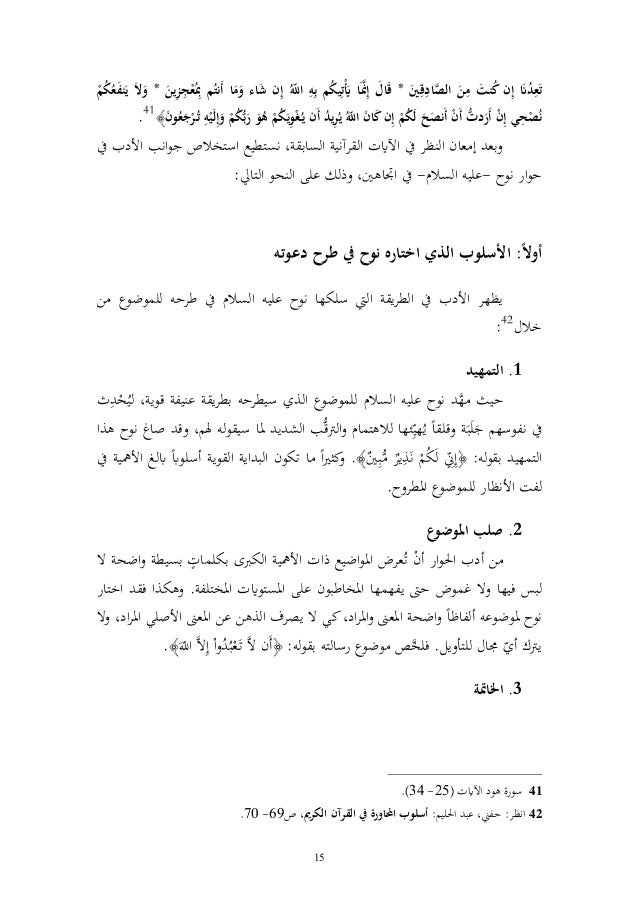 تَعِدُنَا إِن كُنتَ مِنَ الصَّادِقِينَ * قَالَ إِنَّمَا يَأْتِيكُم بِهِ اللّهُ إِن شَاء وَمَا أَنتُم بِمُعْجِزِينَ * وَلاَ يَنفَعُكُمْ
نُصْحِي إِنْ أَرَدتُّ أَنْ أَنصَحَ لَكُمْ إِن كَانَ اللّهُ يُرِيدُ أَن يُغْوِيَكُمْ هُوَ رَبُّكُمْ وَإِلَيْهِ تُرْجَعُونَ﴾41.
وبعد إمعان النظر في الآيات القرآنية السابقة، نستطيع استخلاص جوانب الأدب في
حوار نوح –عليه السلام– في اتجاهين، وذلك على النحو التالي:
أولاً: الأسلوب الذي اختاره نوح في طرح دعوته
يظهر الأدب في الطريقة التي سلكها نوح عليه السلام في طرحه للموضوع من
خلال42:
1. التمهيد
حيث مهَّد نوح عليه السلام للموضوع الذي سيطرحه بطريقة عنيفة قوية، ليُحْدِث
في نفوسهم جَلَبَة وقلقاً يُهيِّئها للاهتمام والترقُّب الشديد لما سيقوله لهم، وقد صاغ نوح هذا
التمهيد بقوله: ﴿إِنِّي لَكُمْ نَذِيرٌ مُّبِينٌ﴾. وكثيراً ما تكون البداية القوية أسلوباً بالغ الأهمية في
لفت الأنظار للموضوع المطروح.
2. صلب الموضوع
من أدب الحوار أنْ تُعرض المواضيع ذات الأهمية الكبرى بكلماتٍ بسيطة واضحة لا
لبس فيها ولا غموض حتى يفهمها المخاطبون على المستويات المختلفة. وهكذا فقد اختار
نوح لموضوعه ألفاظاً واضحة المعنى والمراد، كي لا يصرف الذهن عن المعنى الأصلي المراد، ولا
يترك أيّ مجال للتأويل. فلخَّص موضوع رسالته بقوله: ﴿أَن لاَّ تَعْبُدُواْ إِلاَّ اللّهَ﴾.
3. الخاتمة
41 سورة هود الآيات (25- 34).
42 انظر: حفني، عبد الحليم: أسلوب المحاورة في القرآن الكريم، ص69- 70.
15